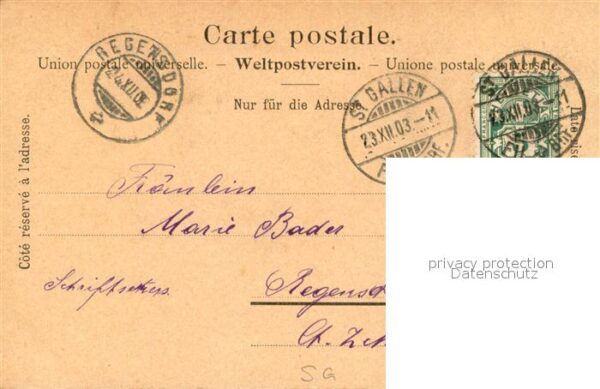 Carte postale.
Union postale universelle. – Weltpostverein. – Unione postale universale.
Nur für die Adresse.
Côté réservé à l'adresse.
REGENSDORF
24.XII.03
ST. GALLEN
23.XII.03.–11
ST. GALLEN
23.XII.03.–11
Fräulein
Marie Bader
Schriftsetzers.
Regensd
Ct. Z
SG
privacy protection
Datenschutz